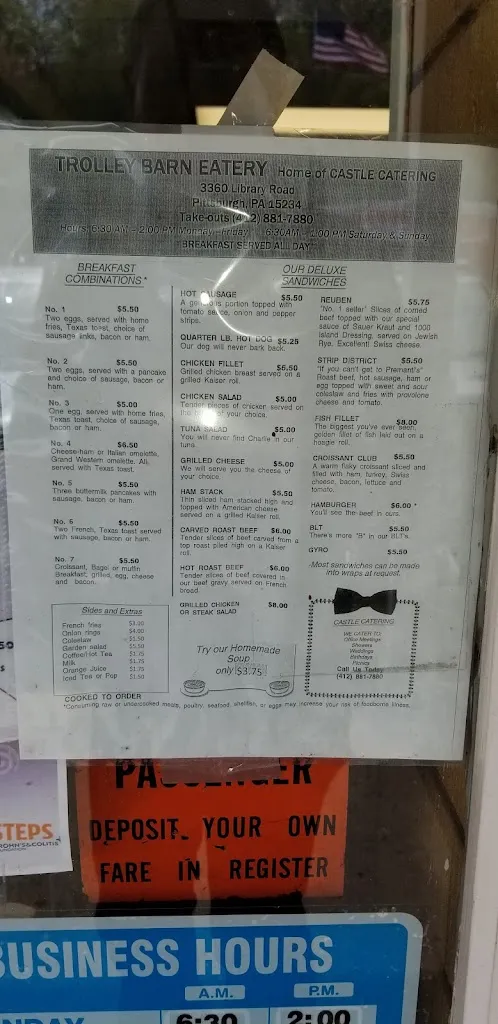 TROLLEY BARN EATERY Home of CASTLE CATERING
3360 Library Road
Pittsburgh, PA 15234
Take-outs (412) 881-7880
Hours: 6:30 AM - 2:00 PM Monday-Friday 6:30AM - 1:00 PM Saturday & Sunday
BREAKFAST SERVED ALL DAY
BREAKFAST
COMBINATIONS *
No. 1 $5.50
Two eggs, served with home
fries, Texas toast, choice of
sausage links, bacon or ham.
No. 2 $5.50
Two eggs, served with a pancake
and choice of sausage, bacon or
ham.
No. 3 $5.00
One egg, served with home fries,
Texas toast, choice of sausage,
bacon or ham.
No. 4 $6.50
Cheese-ham or Italian omelette,
Grand Western omelette. All,
served with Texas toast.
No. 5 $5.50
Three buttermilk pancakes with
sausage, bacon or ham.
No. 6 $5.50
Two French, Texas toast served
with sausage, bacon or ham.
No. 7 $5.50
Croissant, Bagel or muffin
Breakfast, grilled, egg, cheese
and bacon.
Sides and Extras
French fries
Onion rings $4.00
Coleslaw
Garden salad $5.50
Coffee/Hot Tea $1.75
Milk $1.75
Orange Juice $1.75
Iced Tea or Pop $1.50
COOKED TO ORDER
OUR DELUXE
SANDWICHES
HOT SAUSAGE $5.50
A generous portion topped with
tomato sauce, onion and pepper
stripe.
QUARTER LB. HOT DOG $5.25
Our dog will never bark back.
CHICKEN FILLET $6.50
Grilled chicken breast served on a
grilled Kaiser roll.
CHICKEN SALAD $5.00
Tender pieces of chicken served on
the of your choice.
TUNA SALAD $5.00
You will never find Charlie in our
tuna.
GRILLED CHEESE $5.00
We will serve you the cheese of
your choice.
HAM STACK $5.50
Thin sliced ham stacked high and
topped with American cheese
served on a grilled Kaiser roll.
CARVED ROAST BEEF $6.00
Tender slices of beef carved from a
top roast piled high on a Kaiser
roll.
HOT ROAST BEEF $6.00
Tender slices of beef covered in
our beef gravy served on French
bread.
GRILLED CHICKEN $8.00
OR STEAK SALAD
Try our Homemade
Soup
only $3.75
REUBEN $5.75
"No. 1 seller" Slices of corned
beef topped with our special
sauce of Sauer Kraut and 1000
Island Dressing, served on Jewish
Rye. Excellent! Swiss cheese.
STRIP DISTRICT $5.50
"If you can't get to Premanti's"
Roast beef, hot sausage, ham or
egg topped with sweet and sour
coleslaw and fries with provolone
cheese and tomato.
FISH FILLET $8.00
The biggest you've ever seen,
golden fillet of fish laid out on a
hoagie roll.
CROISSANT CLUB $5.50
A warm flaky croissant sliced and
filled with ham, turkey, Swiss
cheese, bacon, lettuce and
tomato.
HAMBURGER $6.00 *
You'll see the beef in ours.
BLT $5.50
There's more "B" in our BLT's.
GYRO $5.50
Most sandwiches can be made
into wraps at request.
CASTLE CATERING
WE CATER TO:
Office Meetings
Showers
Weddings
Birthdays
Picnics
Call Us Today
(412) 881-7880
*Consuming raw or undercooked meats, poultry, seafood, shellfish, or eggs may increase your risk of foodborne illness.
STEPS
DEPOSIT YOUR OWN
FARE IN REGISTER
BUSINESS HOURS
A.M. P.M.
6:30 2:00